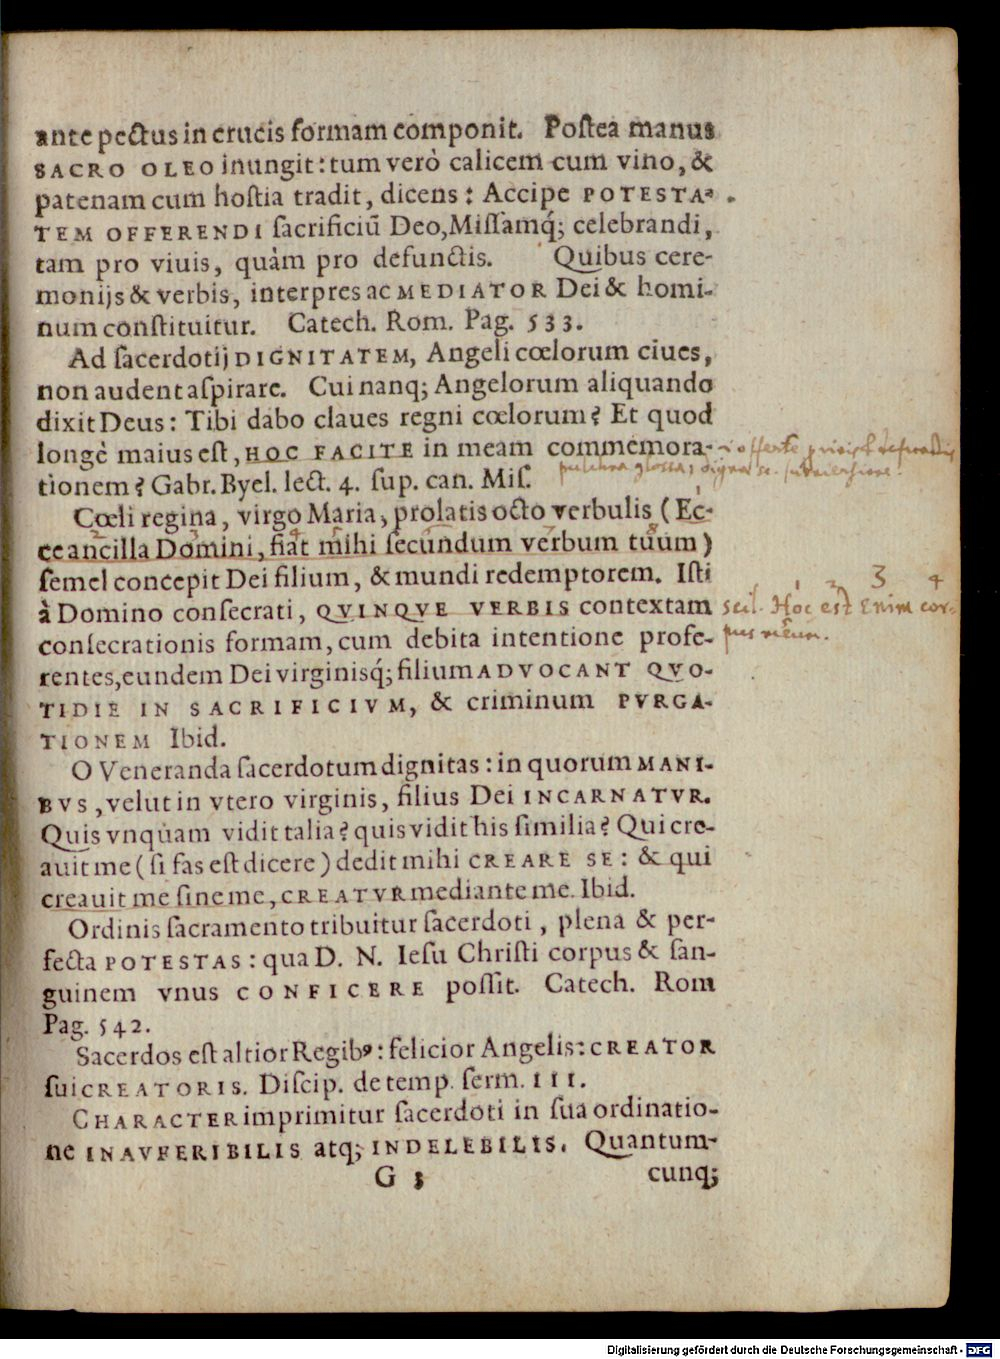 ante pectus in crucis formam componit. Postea manus
SACRO OLEO inungit: tum verò calicem cum vino, &
patenam cum hostia tradit, dicens: Accipe POTESTA-
TEM OFFERENDI sacrificiũ Deo, Missamq́; celebrandi,
tam pro viuis, quàm pro defunctis. Quibus cere-
monijs & verbis, interpres ac MEDIATOR Dei & homi-
num constituitur. Catech. Rom. Pag. 533.
Ad sacerdotij DIGNITATEM, Angeli cœlorum ciues,
non audent aspirare. Cui nanq; Angelorum aliquando
dixit Deus: Tibi dabo claues regni cœlorum? Et quod
longè maius est, HOC FACITE in meam commemora-
i offerte p vivis & defunctis
tionem? Gabr. Byel. lect. 4. sup. can. Mis.
pulchra glossa, digna
Cœli regina, virgo Maria, prolatis octo verbulis (Ec-
ce ancilla Domini, fiat mihi secundum verbum tuum)
semel concepit Dei filium, & mundi redemptorem. Isti
à Domino consecrati, QVINQVE VERBIS contextam
1 2 3 4
scil. Hoc est Enim cor-
consecrationis formam, cum debita intentione profe-
pus meum.
rentes, eundem Dei virginisq́; filium ADVOCANT QVO-
TIDIE IN SACRIFICIVM, & criminum PVRGA-
TIONEM Ibid.
O Veneranda sacerdotum dignitas: in quorum MANI-
BVS, velut in vtero virginis, filius Dei INCARNATVR.
Quis vnquam vidit talia? quis vidit his similia? Qui cre-
auit me (si fas est dicere) dedit mihi CREARE SE: & qui
creauit me sine me, CREATVR mediante me. Ibid.
Ordinis sacramento tribuitur sacerdoti, plena & per-
fecta POTESTAS: qua D. N. Iesu Christi corpus & san-
guinem vnus CONFICERE possit. Catech. Rom
Pag. 542.
Sacerdos est altior Regibꝰ: felicior Angelis: CREATOR
sui CREATORIS. Discip. de temp. serm. III.
CHARACTER imprimitur sacerdoti in sua ordinatio-
ne INAVFERIBILIS atq; INDELEBILIS. Quantum-
G 3 cunq;
Digitalisierung gefördert durch die Deutsche Forschungsgemeinschaft - DFG